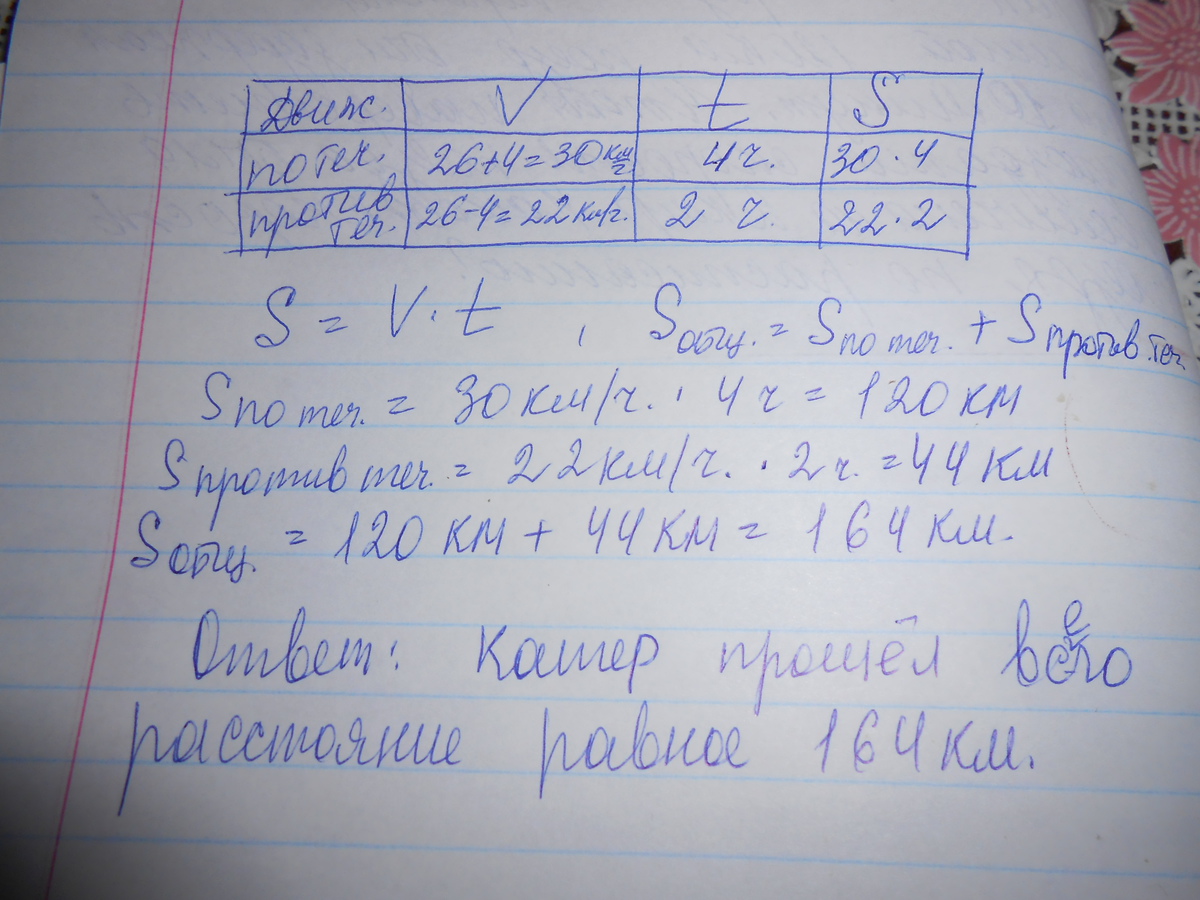 Движ. V t S
по теч. 26+4=30 км/ч 4 ч. 30 · 4
против теч. 26-4=22 км/ч. 2 ч. 22 · 2
S = V · t , Sобщ. = Sпо теч. + Sпротив теч.
Sпо теч. = 30 км/ч. · 4 ч = 120 км
Sпротив теч. = 22 км/ч. · 2 ч. = 44 км
Sобщ. = 120 км + 44 км = 164 км.
Ответ: Катер прошёл всего
расстояние равное 164 км.